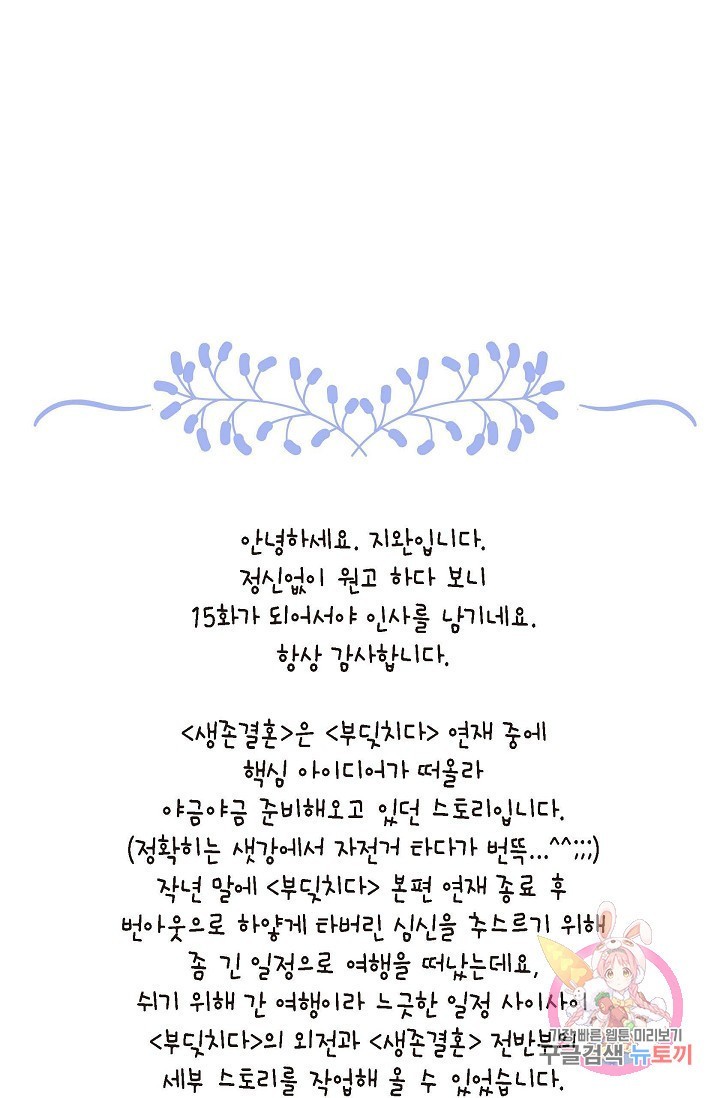 안녕하세요. 지완입니다.
정신없이 원고 하다 보니
15화가 되어서야 인사를 남기네요.
항상 감사합니다.
<생존결혼>은 <부딪치다> 연재 중에
핵심 아이디어가 떠올라
야금야금 준비해오고 있던 스토리입니다.
(정확히는 샛강에서 자전거 타다가 번뜩...^^;;;)
작년 말에 <부딪치다> 본편 연재 종료 후
번아웃으로 하얗게 타버린 심신을 추스르기 위해
좀 긴 일정으로 여행을 떠났는데요,
쉬기 위해 간 여행이라 느긋한 일정 사이사이
<부딪치다>의 외전과 <생존결혼> 전반부의
세부 스토리를 작업해 올 수 있었습니다.
가장빠른 웹툰 미리보기
구글검색 뉴토끼